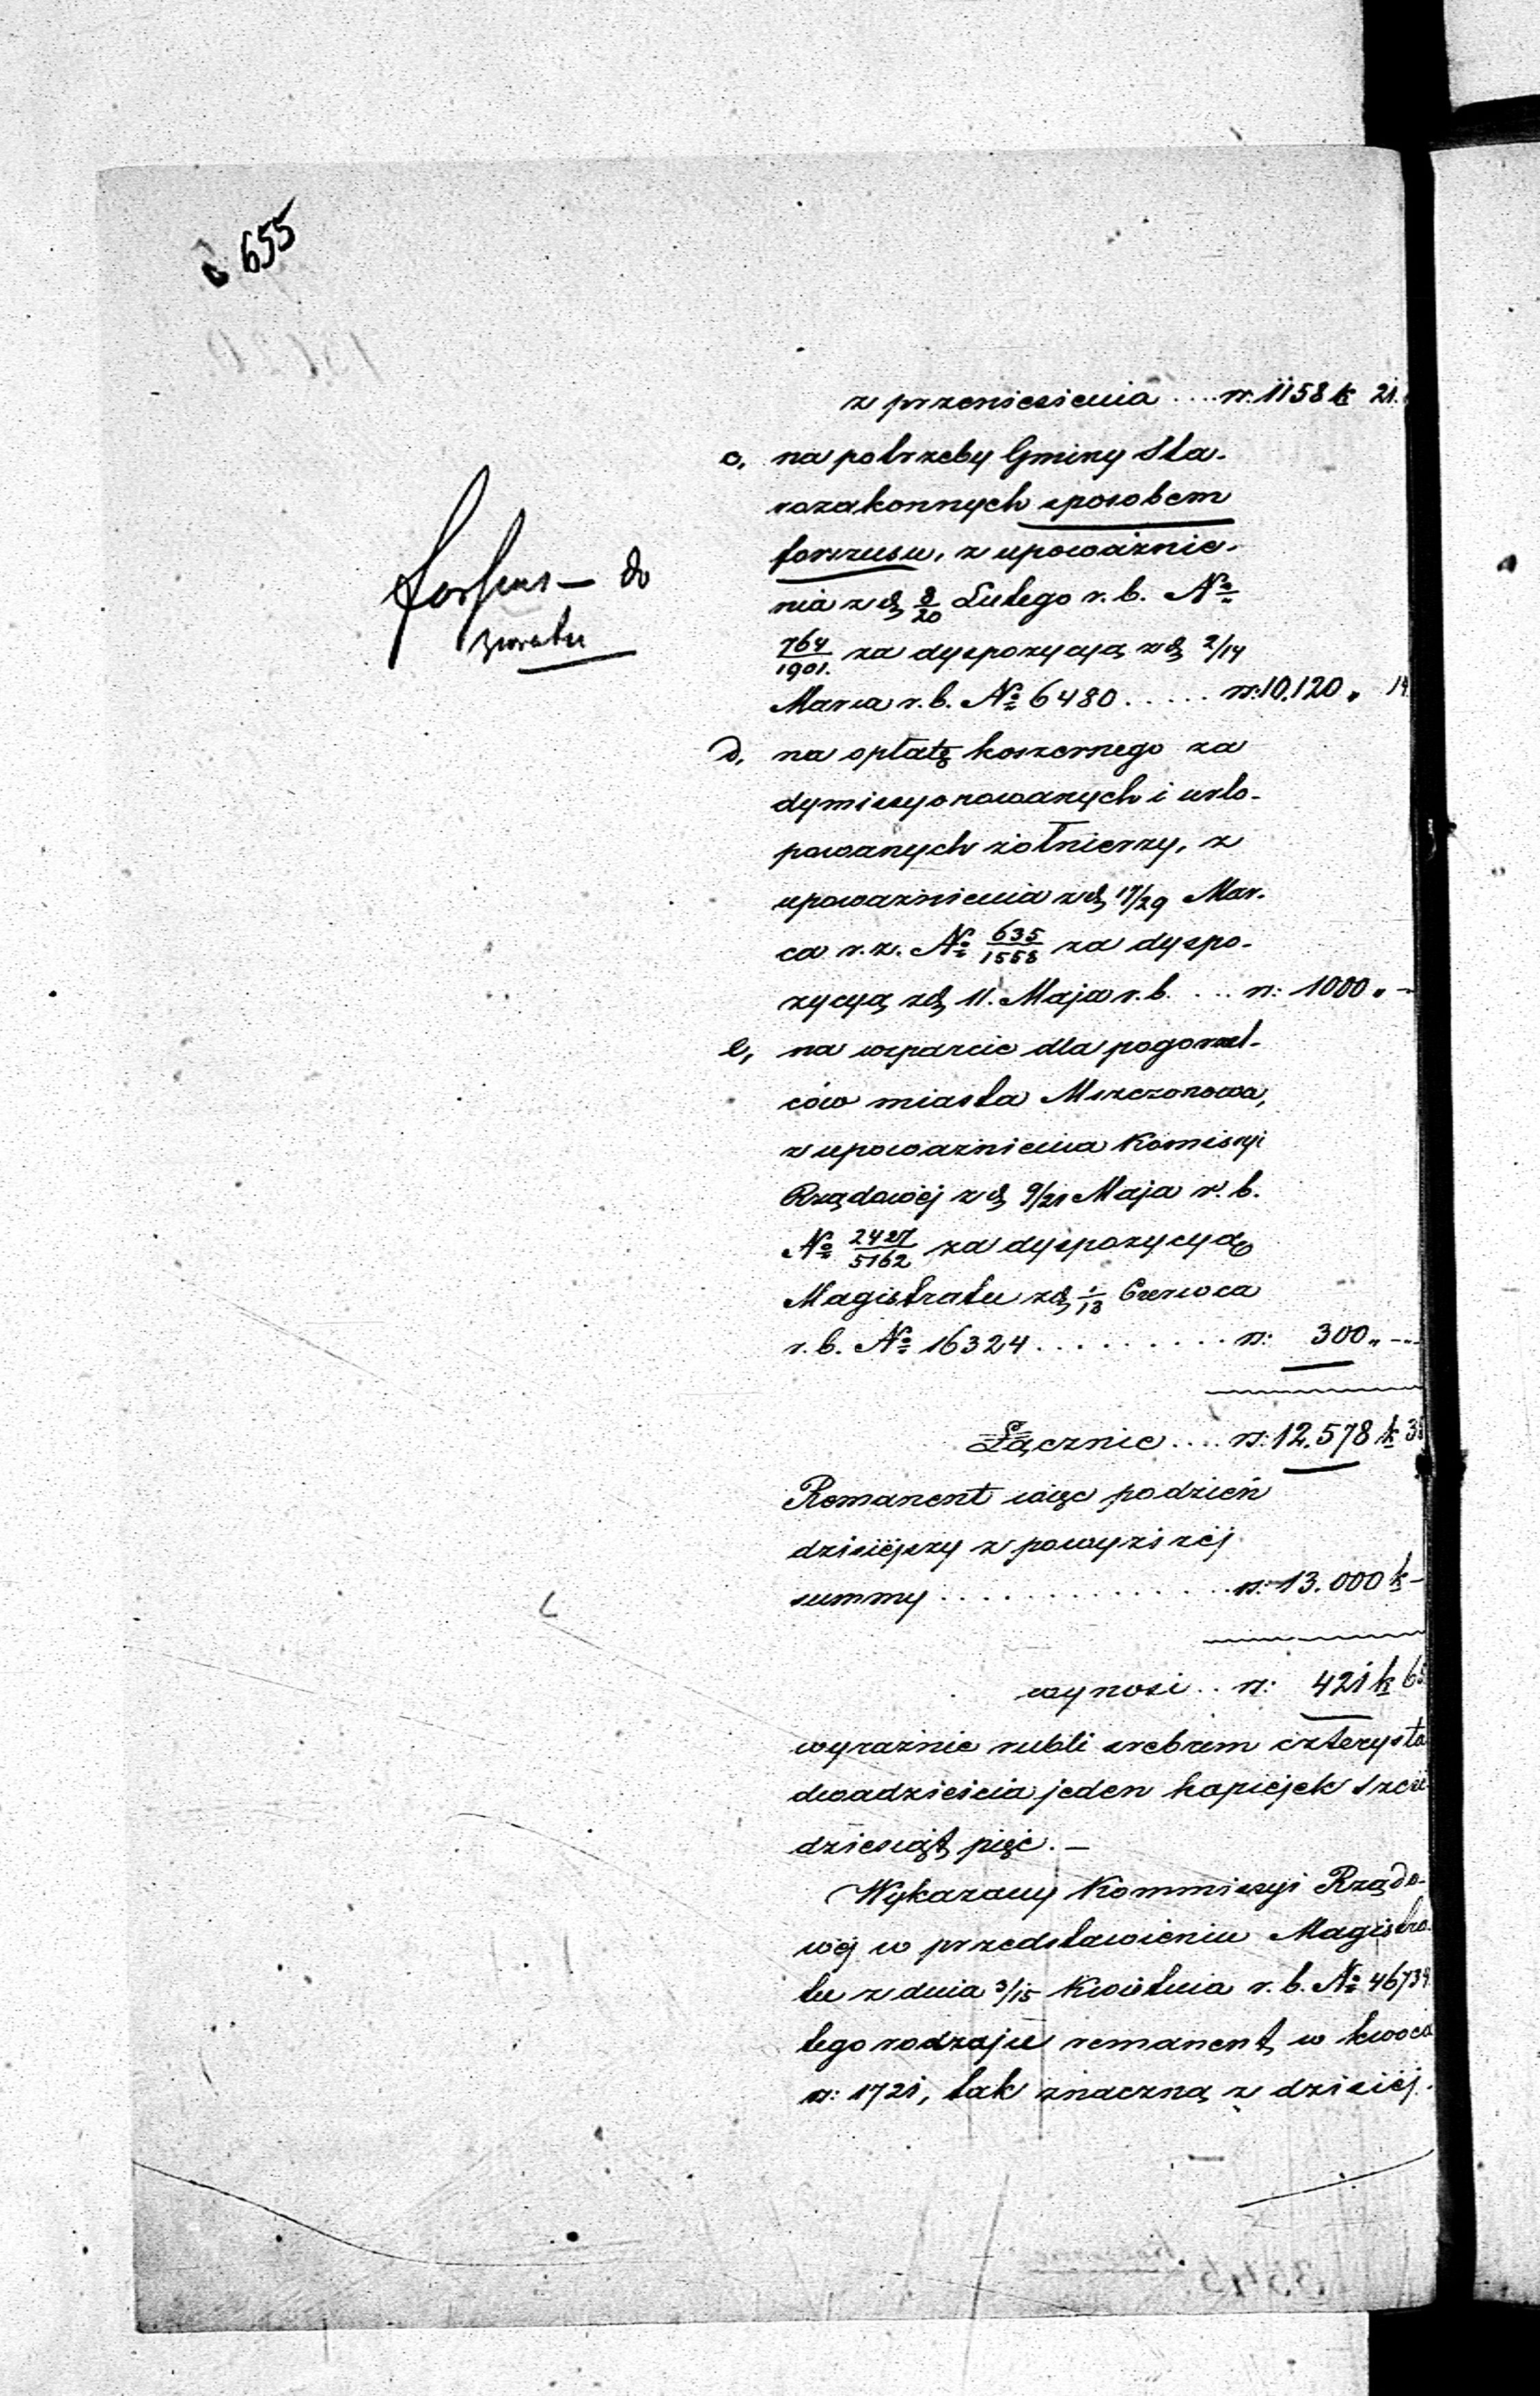 655
z przeniesienia .... rs: 1158 k 21.
c, na potrzeby Gminy Sta-
rozakonnych sposobem
forszusu, z upoważnie-
nia z d. 8/20 Lutego r. b. No
764/1901. za dyspozycyą z d. 2/14
Marca r. b. No 6480 ..... rs: 10,120 „ 14
forszus – do
zwrotu
d, na opłatę koszernego za
dymissyonowanych i urlo-
powanych żołnierzy, z
upoważnienia z d. 17/29 Mar-
ca r. z. No 635/1558 za dyspo-
zycyą z d. 11. Maja r. b. ... rs: 1000 „ –
e, na wsparcie dla pogorzel-
ców miasta Mszczonowa,
z upoważnienia Komissyi
Rządowéj z d. 9/21 Maja r. b.
No 2427/5162 za dyspozycyą
Magistratu z d. 1/13 Czerwca
r. b. No 16324 ......... rs: 300 „ –
Łącznie .... rs: 12,578 k 3
Remanent więc podzień
dzisiéjszy z powyższéj
summy ............. rs: 13.000 k –
wynosi .. rs: 421 k 65
wyraźnie rubli srebrem czterysta
dwadzieścia jeden kopiejek sześć
dziesiąt pięć. –
Wykazany Kommissyi Rządo-
wéj w przedstawieniu Magistra-
tu z dnia 3/15 Kwietnia r. b. No 46739.
tego rodzaju remanent w kwocie
rs: 1721, tak znaczną z dzisiéj-